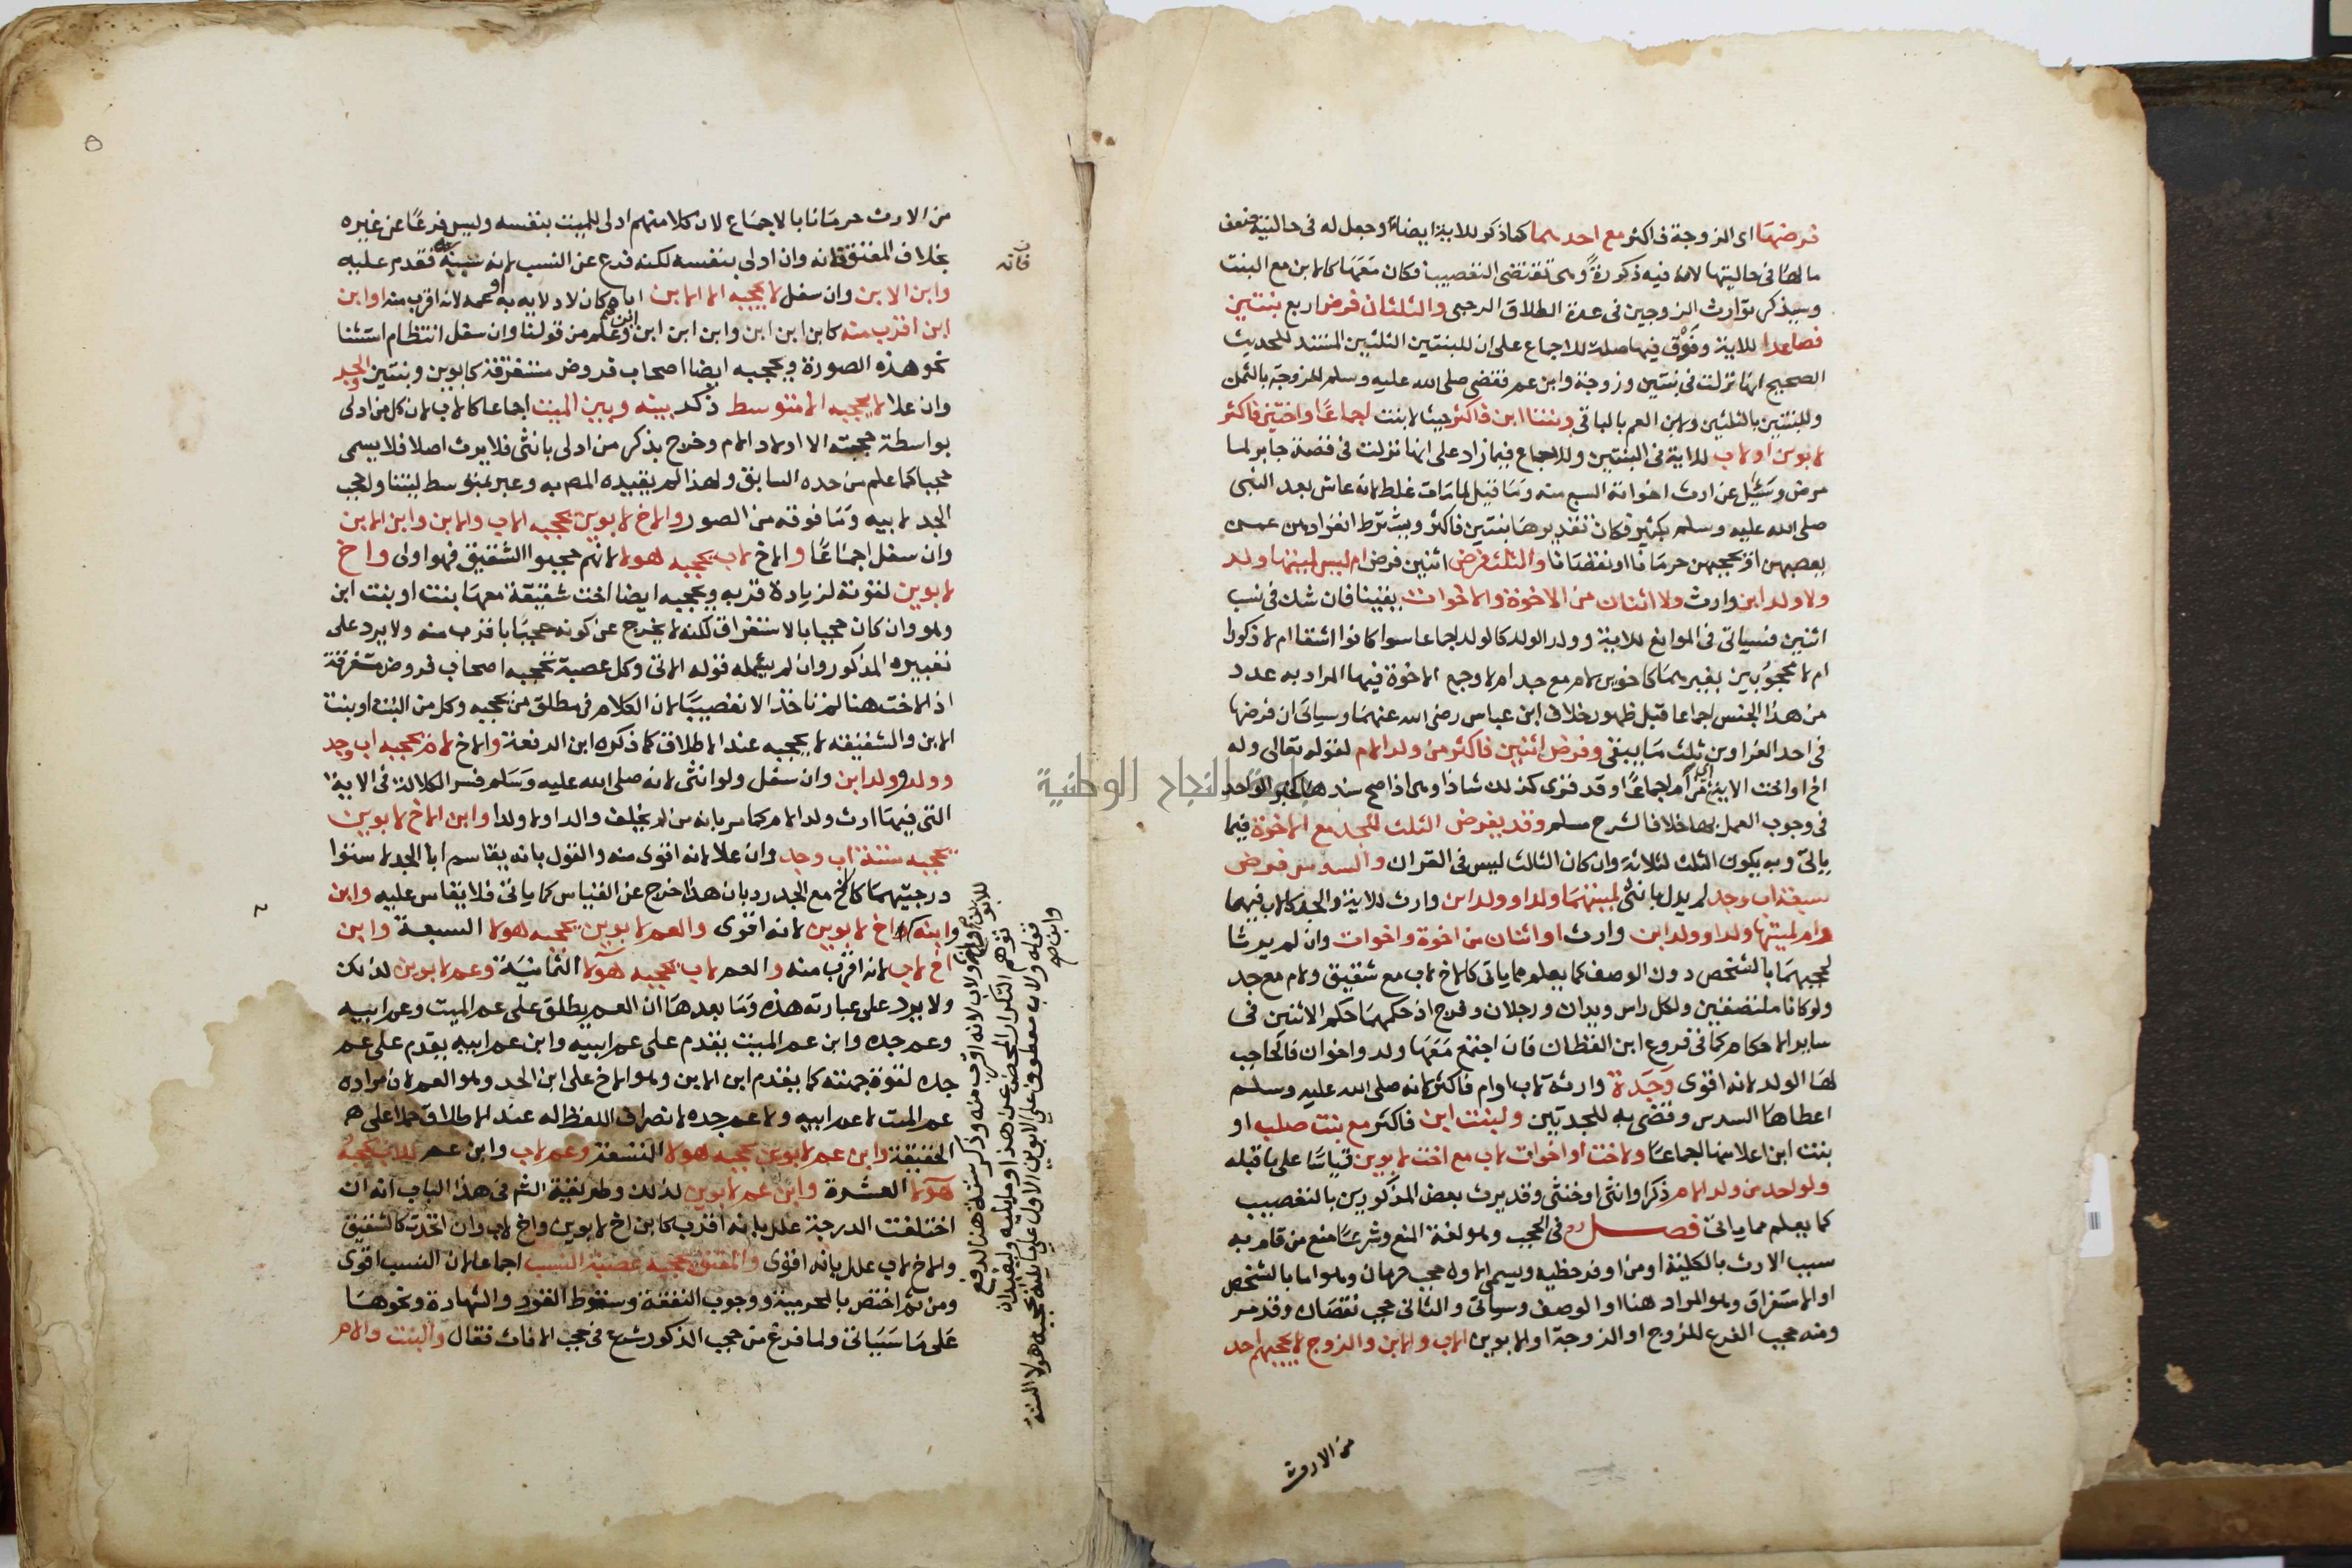 فرضها اى الزوجة فاكثر مع احدهما كما ذكر للاية ايضا وجعل له فى حالتيه ضعف
ما لها فى حالتيها لان فيه ذكورة وهى تقتضى التعصيب فكان معها كالابن مع البنت
وسيذكر توارث الزوجين فى عدة الطلاق الرجعى والثلثان فرض اربع بنتين
فصاعدا للاية وفوق فيها صلة للاجماع على ان للبنتين الثلثين المستند للحديث
الصحيح انها نزلت فى بنتين وزوجة وابن عم فقضى صلى الله عليه وسلم للزوجة بالثمن
وللبنتين بالثلثين ولابن العم بالباقى وبنتا ابن فاكثر حيث لا بنت اجماعا واختين فاكثر
لابوين او لاب للاية فى البنتين وللاجماع فيما زاد على انها نزلت فى قصة جابر لما
مرض وسئل عن ارث اخواته السبع منه وما قيل لما مات غلط لانه عاش بعد النبى
صلى الله عليه وسلم بكثير فكان تقديرها بنتين فاكثر ويشترط انفرادهن عمن
يعصبهن او يحجبهن حرمانا او نقصانا والثلث فرض اثنين فرض ام ليس لميتها ولد
ولا ولد ابن وارث ولا اثنان من الاخوة والاخوات يقينا فان شك فى نسب
اثنين فسياتى فى الموانع للاية وولد الولد كالولد اجماعا سوا كانوا اشقا ام لا ذكورا
ام لا محجوبين بغيرهما كاخوين لام مع جد ام لا وجمع الاخوة فيها المراد به عدد
من هذا الجنس اجماعا قبل ظهور خلاف ابن عباس رضى الله عنهما وسياتى ان فرضها
فى احد الغراوين ثلث ما يبقى وفرض اثنين فاكثر من ولد الام لقوله تعالى وله
اخ او اخت الاية اى من ام اجماعا وقد قرى كذلك شاذا وهى اذا صح سندها كخبر الواحد
فى وجوب العمل بها خلافا لشرح مسلم وقد يفرض الثلث للجد مع الاخوة فيما
ياتى وبه يكون الثلث لثلاثة وان كان الثالث ليس فى القران والسدس فرض
سبعة اب وجد لم يدل بانثى لميتهما ولد او ولد ابن وارث للاية والجد كالاب فيهما
وام لميتها ولد او ولد ابن وارث او اثنان من اخوة واخوات وان لم يرثا
لحجبهما بالشخص دون الوصف كما يعلم مما ياتى كالاخ لاب مع شقيق ولام مع جد
ولو كانا ملتصقين ولكل راس ويدان ورجلان وفرج اذ حكمهما حكم الاثنين فى
ساير الاحكام كما فى فروع ابن القطان فان اجتمع معها ولد واخوان فالحاجب
لها الولد لانه اقوى وجدة وارثة لاب او ام فاكثر لانه صلى الله عليه وسلم
اعطاها السدس وقضى به للجدتين ولبنت ابن فاكثر مع بنت صلب او
بنت ابن اعلا منها اجماعا ولاخت او اخوات لاب مع اخت لابوين قياسا على ما قبله
ولواحد من ولد الام ذكرا وانثى او خنثى وقد يرث بعض المذكورين بالتعصيب
كما يعلم مما ياتى فصل فى الحجب وهو لغة المنع وشرعا منع من قام به
سبب الارث بالكلية او من اوفر حظيه ويسمى الاول حجب حرمان وهو اما بالشخص
او الاستغراق وهو المراد هنا او الوصف وسياتى والثانى حجب نقصان وقد مر
ومنه حجب الفرع للزوج او الزوجة او الابوين الاب والابن والزوج لا يحجبهم احد
من الارث
٥
من الارث حرمانا بالاجماع لان كلا منهم ادلى للميت بنفسه وليس فرعا عن غيره
بخلاف المعتق فانه وان ادلى بنفسه لكنه فرع عن النسب لانه مشبه به فقدم عليه
وابن الابن وان سفل لا يحجبه الا الابن اباه كان لادلايه به او عمه لانه اقرب منه او ابن
ابن اقرب منه كابن ابن ابن وابن ابن ابن ابن وعلم من قولنا وان سفل انتظام استثنا
نحو هذه الصورة ويحجبه ايضا اصحاب فروض مستغرقة كابوين وبنتين والجد
وان علا لا يحجبه الا متوسط ذكر بينه وبين الميت اجماعا كالاب لان كل من ادلى
بواسطة حجبته الا اولاد الام وخرج بذكر من ادلى بانثى فلا يرث اصلا فلا يسمى
حجبا كما علم من حده السابق ولهذا لم يقيده المص به وعبر بمتوسط ليتناول حجب
الجد لابيه وما فوقه من الصور والاخ لابوين يحجبه الاب والابن وابن الابن
وان سفل اجماعا والاخ لاب يحجبه هولا لانهم حجبوا الشقيق فهو اولى واخ
لابوين لقوته لزيادة قربه ويحجبه ايضا اخت شقيقة معها بنت او بنت ابن
وهو وان كان حجبا بالاستغراق لكنه لا يخرج عن كونه حجبا باقرب منه ولا يرد على
تعبيره المذكور وان لم يشمله قوله الاتى وكل عصبة تحجبه اصحاب فروض مستغرقة
اذ الاخت هنا لم تاخذ الا تعصيبا لان الكلام فى مطلق من يحجبه وكل من البنت او بنت
الابن والشقيقة لا يحجبه عند الاطلاق كما ذكره ابن الرفعة والاخ لام يحجبه اب وجد
وولد وولد ابن وان سفل ولو انثى لانه صلى الله عليه وسلم فسر الكلالة فى الاية
التى فيها ارث ولد الام كما مر بانه من لم يخلف والدا ولا ولدا وابن الاخ لابوين
يحجبه ستة اب وجد وان علا لانه اقوى منه والقول بانه يقاسم ابا الجد لاستوا
درجتيهما كالاخ مع الجد رد بان هذا خرج عن القياس كما ياتى فلا يقاس عليه وابن
وابنه واخ لابوين لانه اقوى والعم لابوين يحجبه هولا السبعة وابن
اخ لاب لانه اقرب منه والعم لاب يحجبه هولا الثمانية وعم لابوين لذلك
ولا يرد على عبارته هذه وما بعدها ان العم يطلق على عم الميت وعم ابيه
وعم جده وابن عم الميت يقدم على عم ابيه وابن عم ابيه يقدم على عم
جده لقوة جهته كما يقدم ابن الابن وهو الاخ على ابن الجد وهو العم لان مراده
عم الميت لا عم ابيه ولا عم جده لانصراف اللفظ له عند الاطلاق حملا على
الحقيقة وابن عم لابوين يحجبه هولا التسعة وعم لاب وابن عم للاب يحجبه
هولا العشرة وابن عم لابوين لذلك وطريقة الشم فى هذا الباب انه ان
اختلفت الدرجة علل بانه اقرب كابن اخ لابوين واخ لاب وان اتحدت كالشقيق
والاخ لاب علل بانه اقوى والمعتق يحجبه عصبة النسب اجماعا لان النسب اقوى
ومن ثم اختص بالمحرمية ووجوب النفقة وسقوط القود والشهادة ونحوها
على ما سياتى ولما فرغ من حجب الذكور شرع فى حجب الاناث فقال والبنت والام
فانه
ولاب لانه اقرب منه وذكر ستة هنا لدفع
توهم التكرار المحض عن هذا وما يليه
قوله ولاب معطوف على لابوين الاول